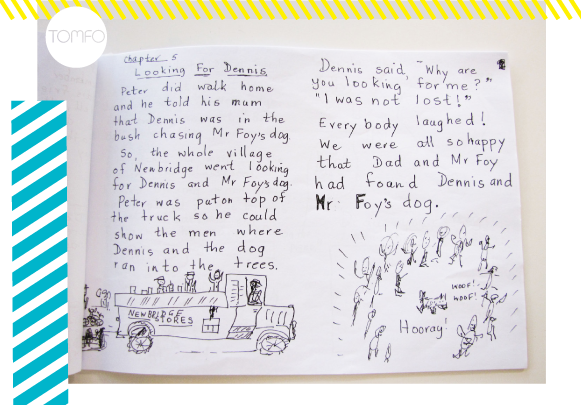 TOMFO
Chapter 5
Looking For Dennis
Peter did walk home
and he told his mum
that Dennis was in the
bush chasing Mr Foy's dog.
So, the whole village
of Newbridge went looking
for Dennis and Mr Foy's dog.
Peter was put on top of
the truck so he could
show the men where
Dennis and the dog
ran into the trees.
NEWBRIDGE
STORES
Dennis said, "Why are
you looking for me?"
"I was not lost!"
Everybody laughed!
We were all so happy
that Dad and Mr Foy
had found Dennis and
Mr. Foy's dog.
WOOF!
WOOF!
Hooray!